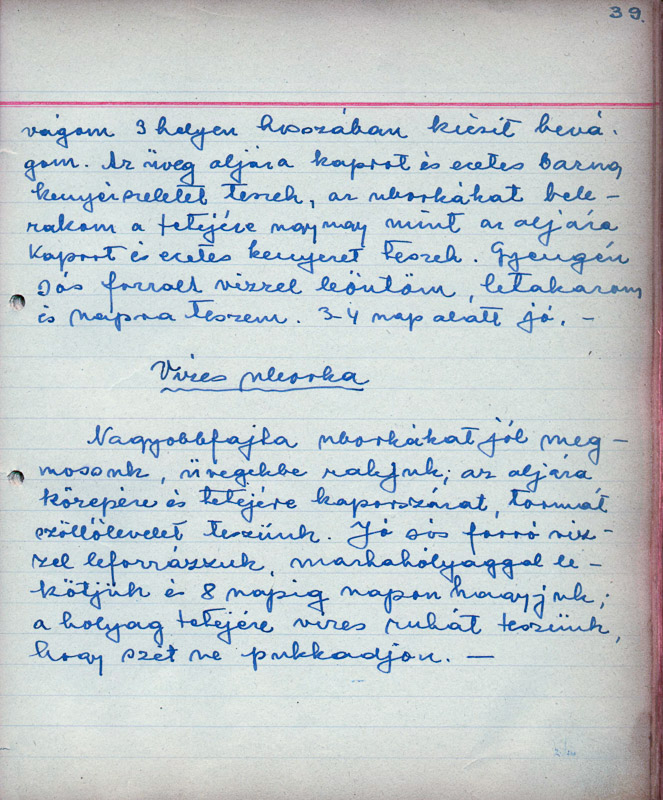 39.
vágom 3 helyen hosszában kicsit bevá-
gom. Az üveg aljára kaprot és ecetes barna
kenyérszeletet teszek, az uborkákat bele-
rakom a tetejére ugyanúgy mint az aljára
kaprot és ecetes kenyeret teszek. Gyengén
sós forralt vizzel leöntöm, letakarom
és napra teszem. 3-4 nap alatt jó. -
Vizes uborka
Nagyobbfajta uborkákat jól meg-
mosunk, üvegekbe rakjuk; az aljára
közepére és tetejére kaporszárat, tormát
szöllőlevelet teszünk. Jó sós forró viz-
zel leforrázzuk, marhahólyaggal le-
kötjük és 8 napig napon hagyjuk;
a holyag tetejére vizes ruhát teszünk,
hogy szét ne pukkadjon. —